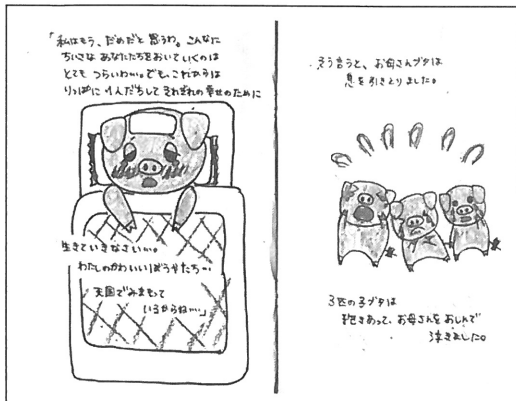 「私はもう、だめだと思うわ。こんなに
ちいさなあなたたちをおいていくのは
とてもつらいわ…。でも、これからは
りっぱに1人だちしてそれぞれの幸せのために
生きていきなさい…。
わたしのかわいいぼうやたち…
天国でみまもって
いるからね…」
そう言うと、お母さんブタは
息を引きとりました。
3匹の子ブタは
抱きあって、お母さんをおしんで
泣きました。